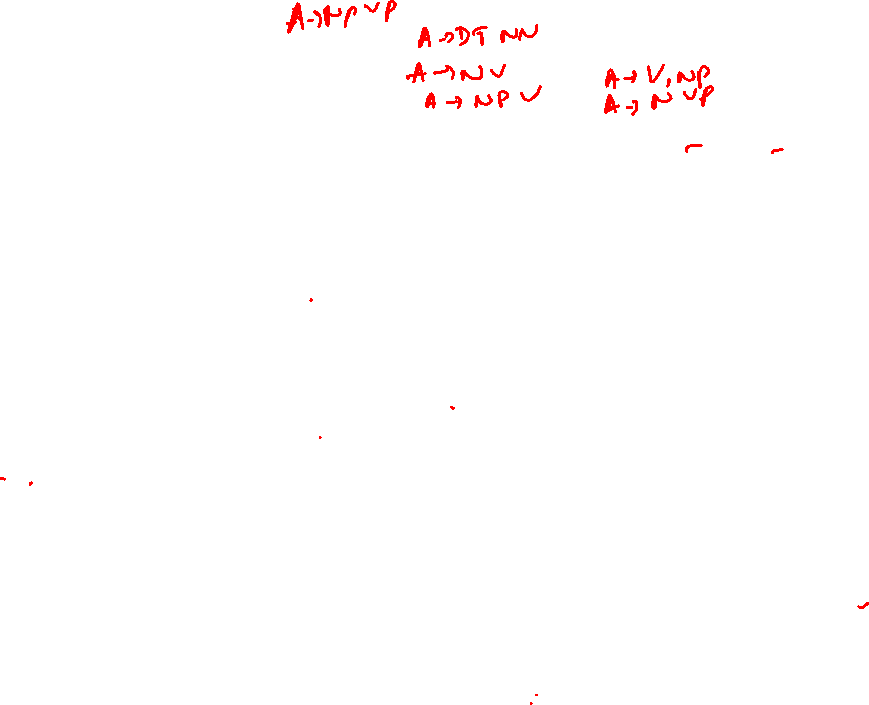 A → NP VP
A → DT NN
A → N V
A → V, NP
A → NP V
A → N VP